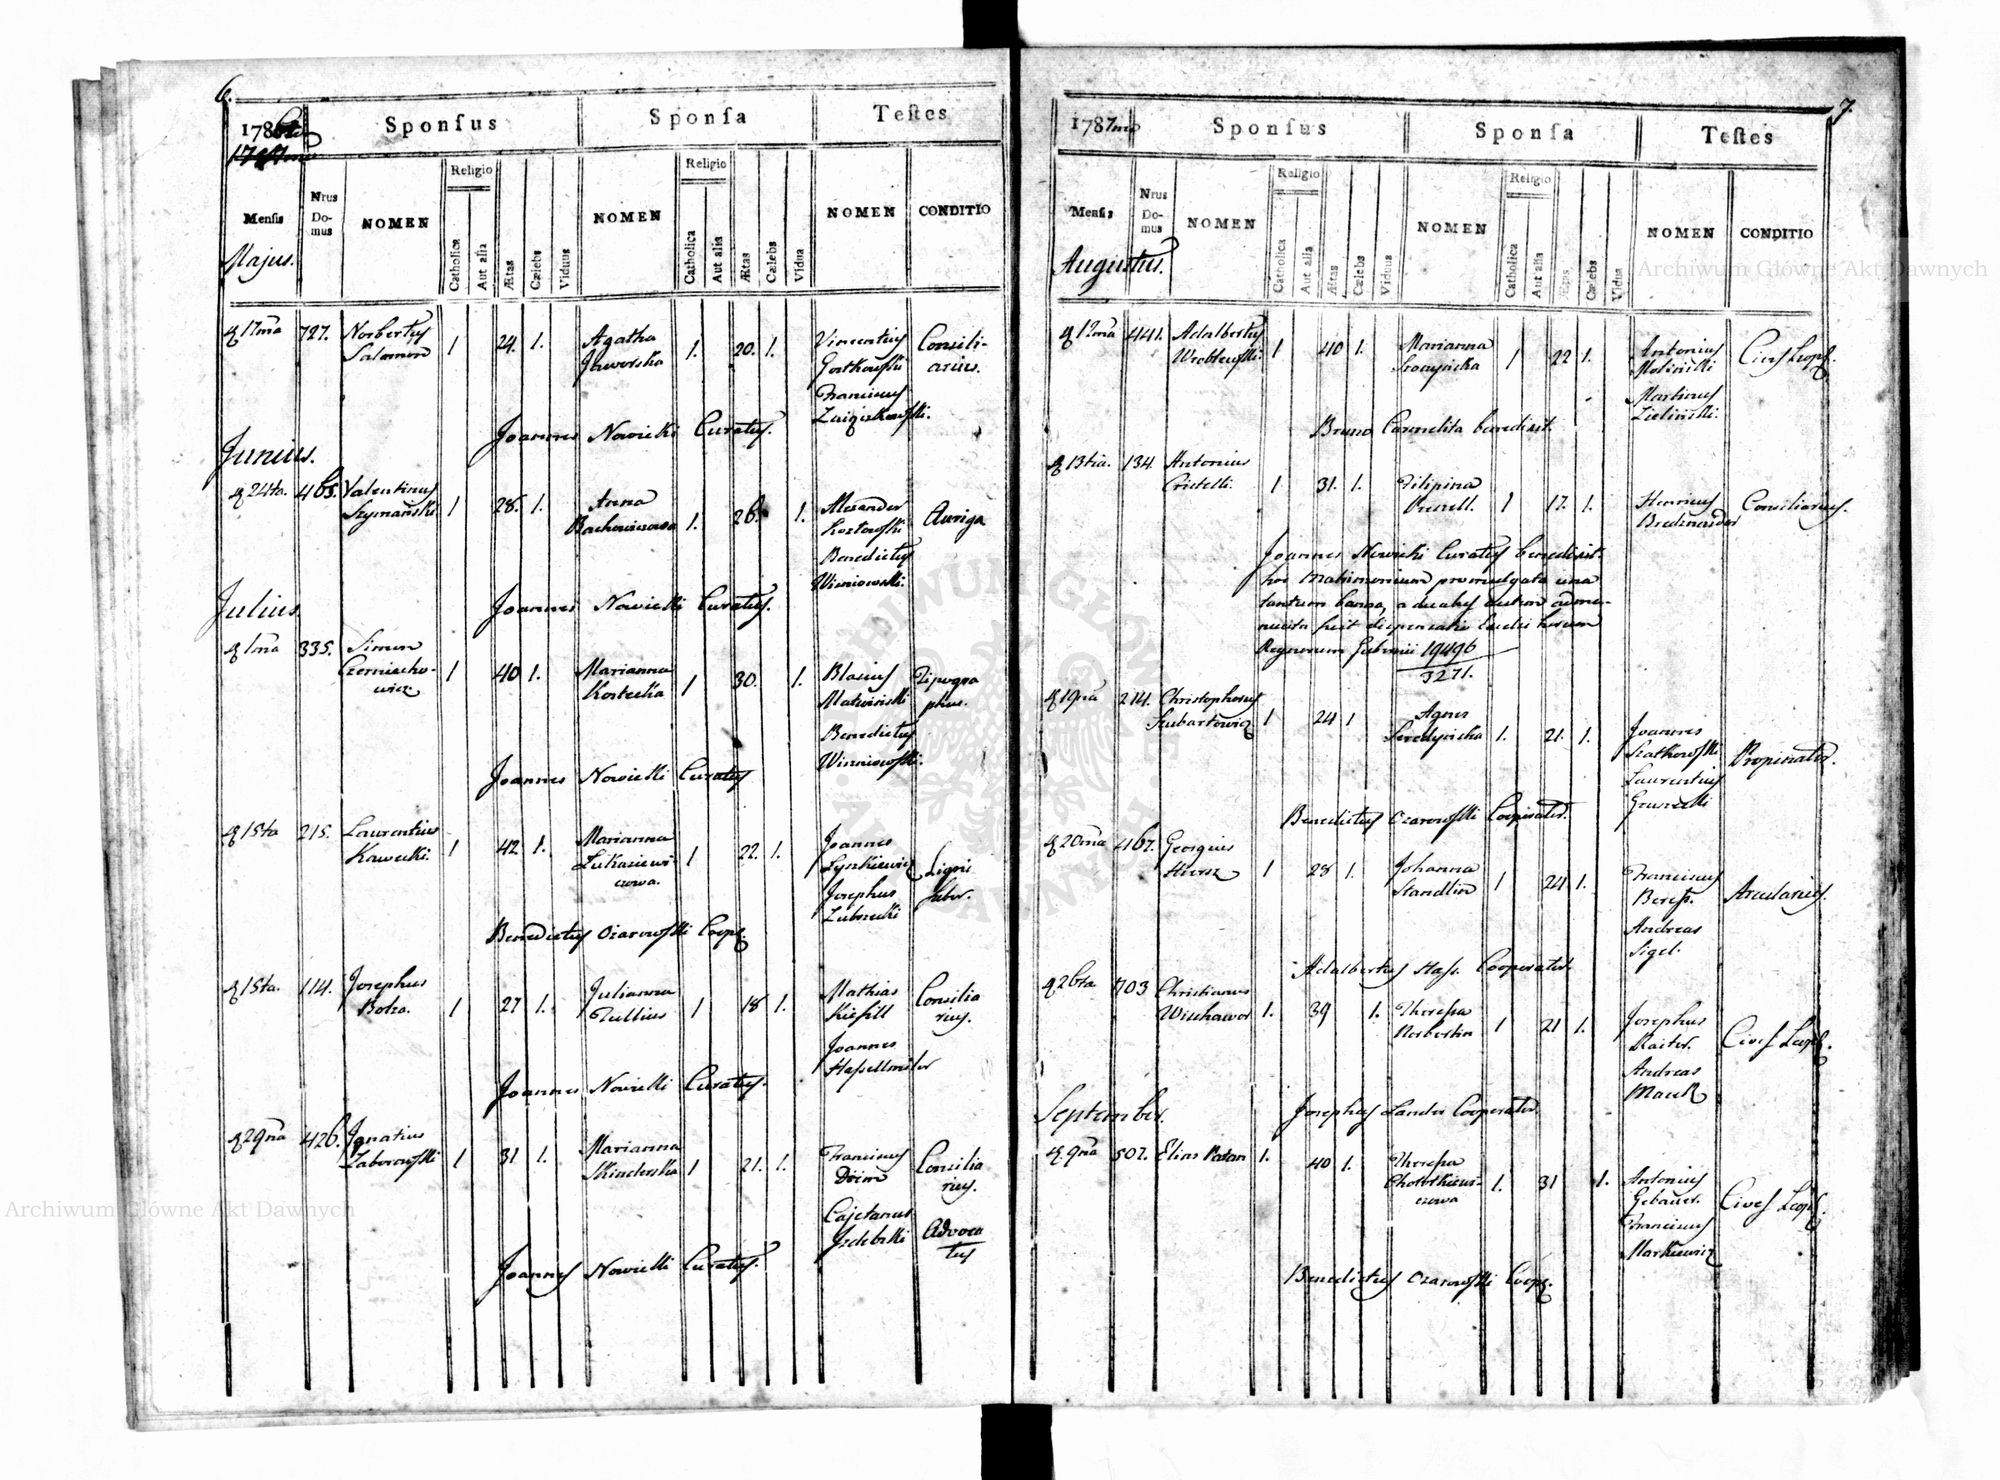 6.
178
Sponſus
Sponſa
Teſtes
Religio
Religio
Menſis
Nrus
Do-
mus
NOMEN
Catholica
Aut alia
Ætas
Cælebs
Viduus
NOMEN
Catholica
Aut alia
Ætas
Cælebs
Vidua
NOMEN
CONDITIO
Majus.
17ma 727. Norbertus 1 24. 1. Agatha 1. 20. 1. Vincentius Consili-
Salomon Jaworska Gorkowski arius.
Franciscus
Joannes Nowicki Curatus.
Junius.
24ta. 465. Valentinus 1 28. 1. Anna 1. 26. 1. Alexander Auriga
Szymański Kozłowski
Benedictus
Wisniowski.
Joannes Nowicki Curatus.
Julius.
1ma 335. Simon 1 40 1. Marianna 1 30. 1. Blasius Tipogra
Czerniecho- Kostecka Matwiński phus.
wicz Benedictus
Wisniowski.
Joannes Nowicki Curatus
15ta 215. Laurentius 1 42 1. Marianna 1 22. 1. Joannes Ligni
Kawecki. Łukasiewi- Łyszkiewicz faber.
czowa. Josephus
Zubrzecki
Benedictus Ożarowski Coop.
15ta. 114. Josephus 1 27 1. Julianna 1 18 1. Mathias Consilia
Bolza. Tullius rius.
Joannes
Joannes Nowicki Curatus.
29na 426. Ignatius 1 31 1. Marianna 1 21. 1. Franciscus Consilia
Zaborowski Skinderska rius.
Cajetanus Advoca
Izdebski tus
Joannes Nowicki Curatus.
7.
1787mo
Sponſus
Sponſa
Teſtes
Religio
Religio
Menſis
Nrus
Do-
mus
NOMEN
Catholica
Aut alia
Ætas
Cælebs
Viduus
NOMEN
Catholica
Aut alia
Ætas
Cælebs
Vidua
NOMEN
CONDITIO
Augustus.
441. Adalbertus 1 40 1. Marianna 1 22 1. Antonius Cives Leop.
Wroblewski Martinus
Zieliński.
Bruno Carmelita benedixit.
13tia. 134. Antonius 1 31. 1. Filipina 1 17. 1. Henricus Consiliarius.
Cristelli.
Joannes Nowicki Curatus benedixit
hoc Matrimonium promulgata una
tantum banna, a duabus autem
fuit dispensatio
Regnorum Gubernii 19496
3271.
19na 214. Christophorus 1 24 1 Agnes 1. 21. 1. Joannes Propinator.
Hubartowicz Szatkowski
Laurentius
Benedictus Ożarowski Cooperator.
20ma 467. Georgius 1 28 1. Johanna 1 24 1. Franciscus Arcularius.
Standlin
Andreas
Sigel.
Adalbertus Hass. Cooperator.
26ta 703 Christianus 1. 39 1. Theresa 1 21 1. Josephus Cives Leop.
Norbertin Raiter.
Andreas
Mauk
September.
Josephus Lander Cooperator
9na 507. Elias 1. 40 1. Theresa 1. 31 1. Antonius Cives Leop.
Gebauer.
czowa Franciscus
Markiewicz
Benedictus Ożarowski Coop.
Archiwum Główne Akt Dawnych
Archiwum Główne Akt Dawnych
ARCHIWUM GŁÓWNE AKT DAWNYCH